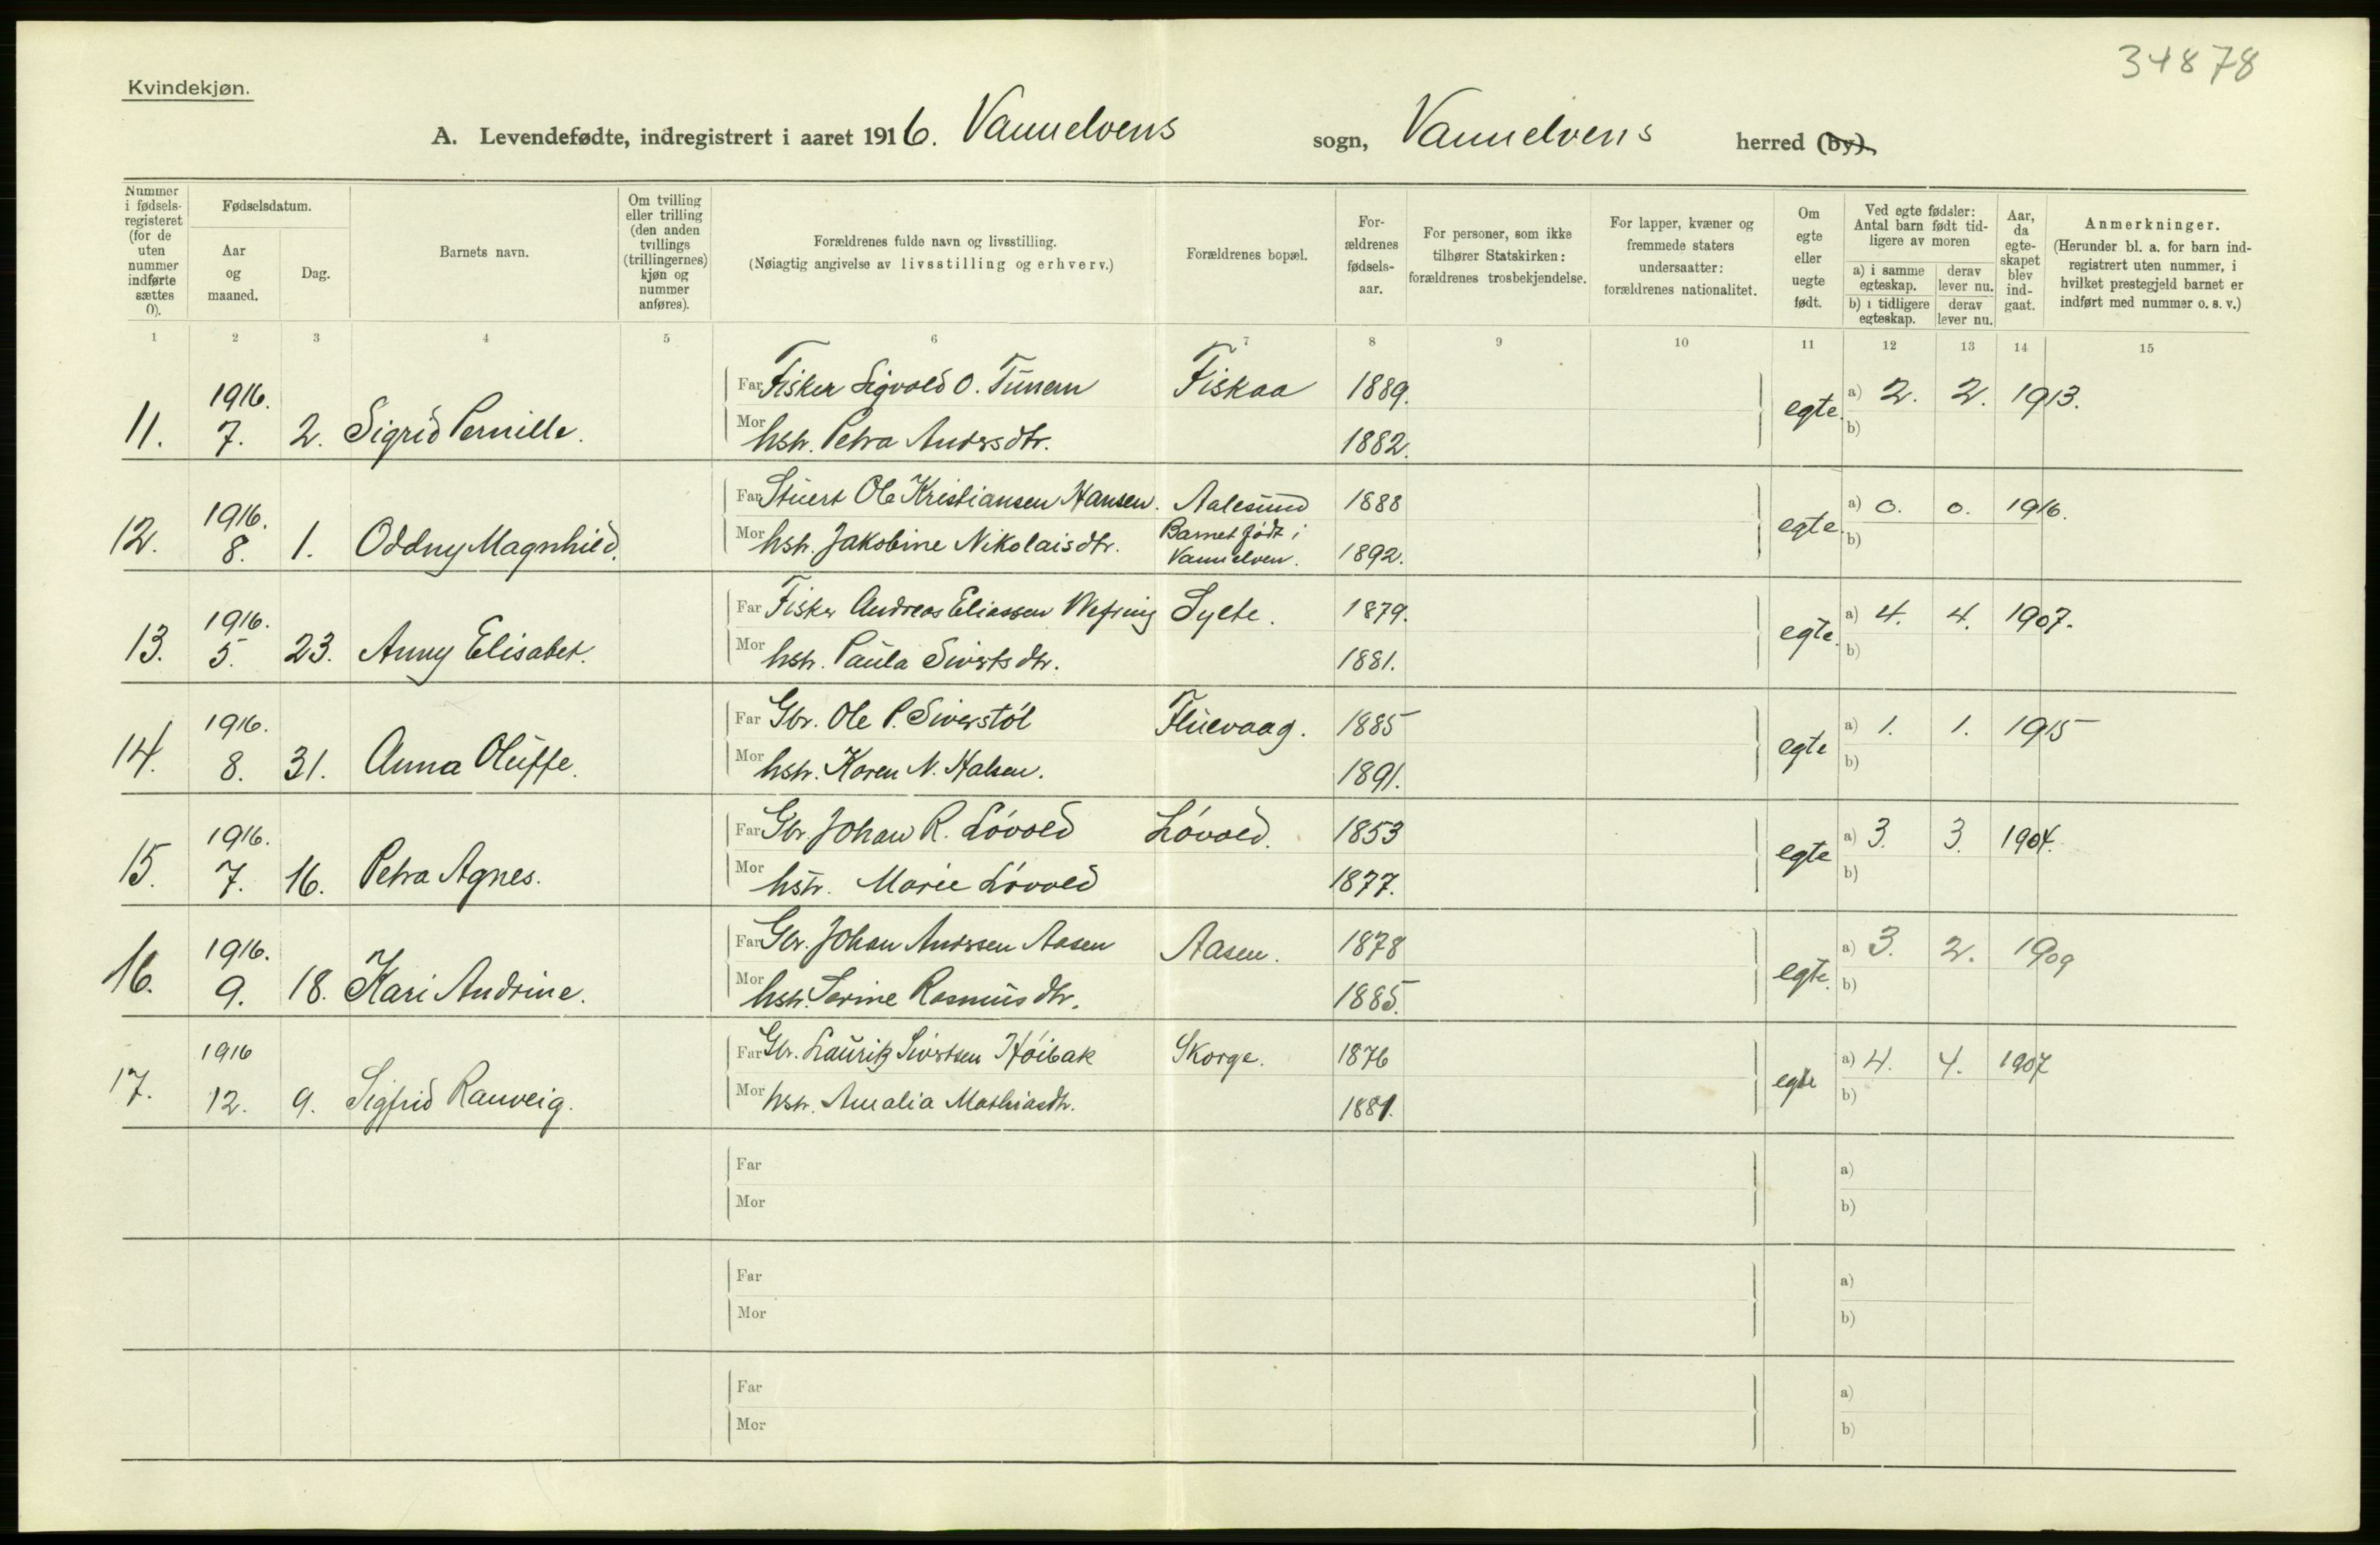 34878
Kvindekjøn.
A. Levendefødte, indregistrert i aaret 1916. Vannelvens sogn, Vannelvens herred (by).
Nummer i fødselsregisteret (for de uten nummer indførte sættes 0).
Fødselsdatum.
Aar og maaned.
Dag.
Barnets navn.
Om tvilling eller trilling (den anden tvillings (trillingernes) kjøn og nummer anføres).
Forældrenes fulde navn og livsstilling.
(Nøiagtig angivelse av livsstilling og erhverv.)
Forældrenes bopæl.
Forældrenes fødselsaar.
For personer, som ikke tilhører Statskirken: forældrenes trosbekjendelse.
For lapper, kvæner og fremmede staters undersaatter: forældrenes nationalitet.
Om egte eller uegte født.
Ved egte fødsler: Antal barn født tidligere av moren
a) i samme egteskap.
derav lever nu.
b) i tidligere egteskap.
derav lever nu.
Aar, da egteskapet blev indgaat.
Anmerkninger.
(Herunder bl. a. for barn indregistrert uten nummer, i hvilket prestegjeld barnet er indført med nummer o. s. v.)
1 2 3 4 5 6 7 8 9 10 11 12 13 14 15
1916. Far Fisker Sigvald O. Tunem Fiskaa 1889. egte. a) 2. 2. 1913.
11. 7. 2. Sigrid Pernille. Mor hstr. Petra Andrsdtr. 1882. b)
1916. Far Stuert Ole Kristiansen Hansen. Aalesund 1888 egte. a) 0. 0. 1916.
12. 8. 1. Oddny Magnhild. Mor hstr. Jakobine Nikolaisdtr. Barnet født i Vannelven. 1892. b)
1916. Far Fisker Andreas Eliassen Wefring Sylte. 1879. egte. a) 4. 4. 1907.
13. 5. 23. Anny Elisabet. Mor hstr. Paula Sivertsdtr. 1881. b)
1916. Far Gbr. Ole P. Siverstøl Fluevaag. 1885 egte a) 1. 1. 1915
14. 8. 31. Anna Oluffe. Mor hstr. Karen N. Halsen. 1891. b)
1916. Far Gbr. Johan R. Løvold Løvold. 1853 egte a) 3. 3. 1904.
15. 7. 16. Petra Agnes. Mor hstr. Marie Løvold 1877. b)
1916. Far Gbr. Johan Andrsen Aasen Aasen. 1878 egte. a) 3. 2. 1909
16. 9. 18. Kari Andrine. Mor hstr. Serine Rasmusdtr. 1885. b)
1916 Far Gbr. Lauritz Sivertsen Høibak Skorge. 1876 egte a) 4. 4. 1907
17. 12. 9. Sigfrid Ranveig. Mor hstr. Amalia Mathiasdtr. 1881. b)
Far a)
Mor b)
Far a)
Mor b)
Far a)
Mor b)